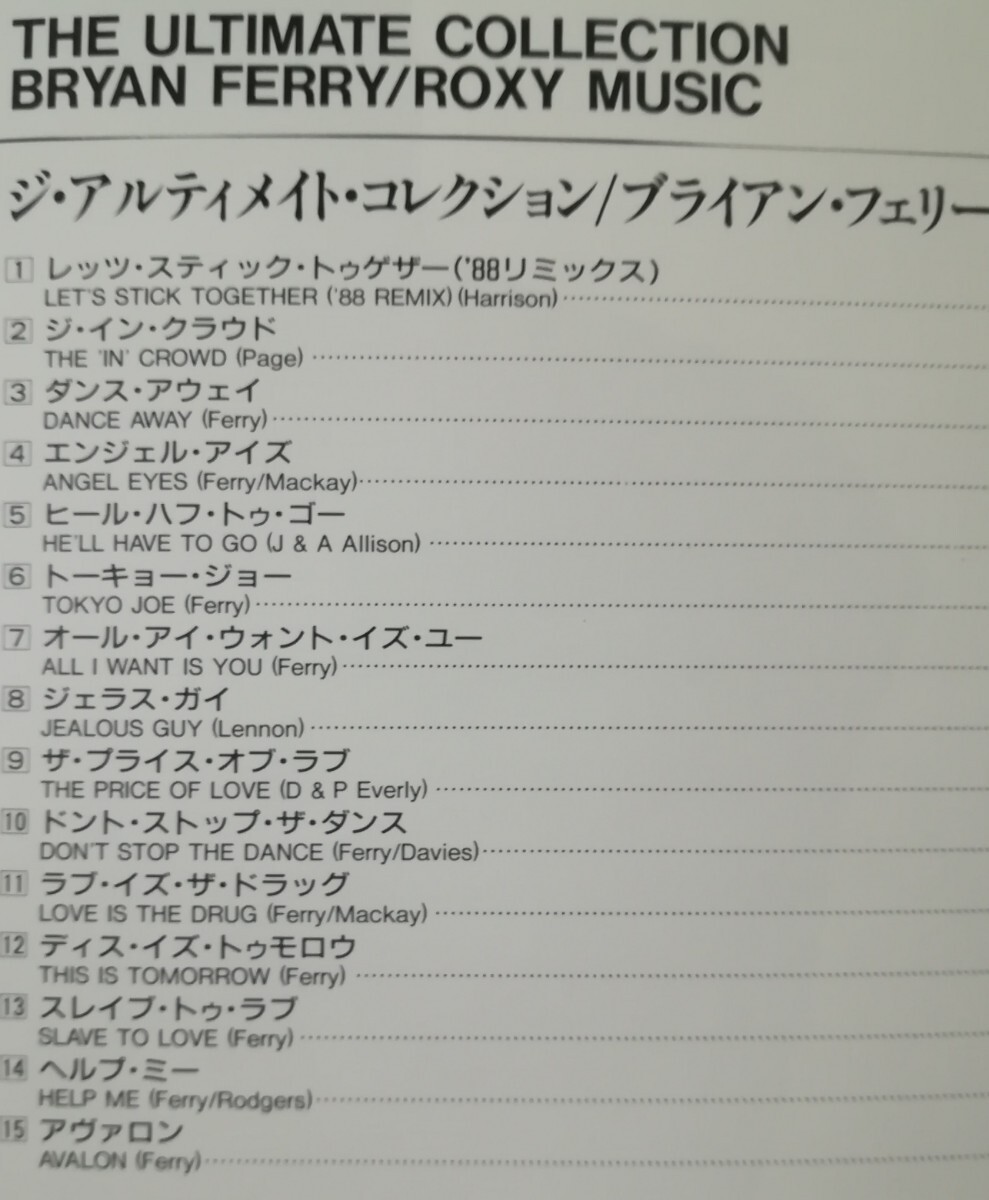 THE ULTIMATE COLLECTION
BRYAN FERRY/ROXY MUSIC
ジ・アルティメイト・コレクション/ブライアン・フェリー
1 レッツ・スティック・トゥゲザー('88リミックス)
LET'S STICK TOGETHER ('88 REMIX) (Harrison)
2 ジ・イン・クラウド
THE 'IN' CROWD (Page)
3 ダンス・アウェイ
DANCE AWAY (Ferry)
4 エンジェル・アイズ
ANGEL EYES (Ferry/Mackay)
5 ヒール・ハフ・トゥ・ゴー
HE'LL HAVE TO GO (J & A Allison)
6 トーキョー・ジョー
TOKYO JOE (Ferry)
7 オール・アイ・ウォント・イズ・ユー
ALL I WANT IS YOU (Ferry)
8 ジェラス・ガイ
JEALOUS GUY (Lennon)
9 ザ・プライス・オブ・ラブ
THE PRICE OF LOVE (D & P Everly)
10 ドント・ストップ・ザ・ダンス
DON'T STOP THE DANCE (Ferry/Davies)
11 ラブ・イズ・ザ・ドラッグ
LOVE IS THE DRUG (Ferry/Mackay)
12 ディス・イズ・トゥモロウ
THIS IS TOMORROW (Ferry)
13 スレイブ・トゥ・ラブ
SLAVE TO LOVE (Ferry)
14 ヘルプ・ミー
HELP ME (Ferry/Rodgers)
15 アヴァロン
AVALON (Ferry)